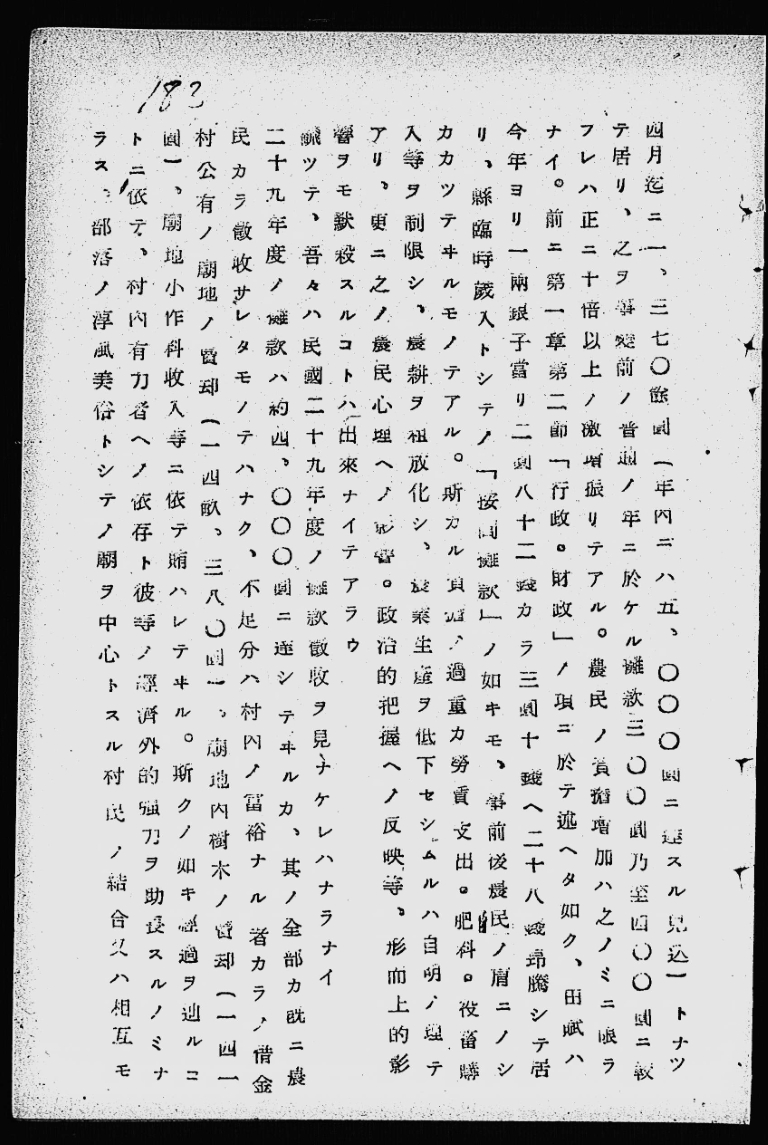 183
四月迄ニ一、三七〇餘圓(年內ニハ五、〇〇〇圓ニ達スル見込)トナツ
テ居リ、之ヲ事變前ノ普通ノ年ニ於ケル攤款三〇〇圓乃至四〇〇圓ニ較
フレハ正ニ十倍以上ノ激增振リテアル。農民ノ負擔增加ハ之ノミニ限ラ
ナイ。前ニ第一章第二節「行政。財政」ノ項ニ於テ述ヘタ如ク、田賦ハ
今年ヨリ一兩銀子當リ二圓八十二錢カラ三圓十錢ヘ二十八錢昂騰シテ居
リ、縣臨時歲入トシテノ「按田攤款」ノ如キモ、事前後農民ノ肩ニノシ
カカツテヰルモノテアル。斯カル負擔ノ過重カ勞賃支出。肥料。役畜購
入等ヲ制限シ、農耕ヲ粗放化シ、農業生產ヲ低下セシムルハ自明ノ理テ
アリ、更ニ之ノ農民心理ヘノ影響。政治的把握ヘノ反映等、形而上的影
響ヲモ默殺スルコトハ出來ナイテアラウ
飜ツテ、吾々ハ民國二十九年度ノ攤款徵收ヲ見ナケレハナラナイ
二十九年度ノ攤款ハ約四、〇〇〇圓ニ達シテヰルカ、其ノ全部カ既ニ農
民カラ徵收サレタモノテハナク、不足分ハ村內ノ富裕ナル者カラノ借金
村公有ノ廟地ノ賣却(一四畝、三八〇圓)、廟地內樹木ノ賣却(一四一
圓)、廟地小作料收入等ニ依テ賄ハレテヰル。斯クノ如キ經過ヲ辿ルコ
トニ依テ、村內有力者ヘノ依存ト彼等ノ經濟外的强力ヲ助長スルノミナ
ラス、部落ノ淳風美俗トシテノ廟ヲ中心トスル村民ノ結合又ハ相互モ